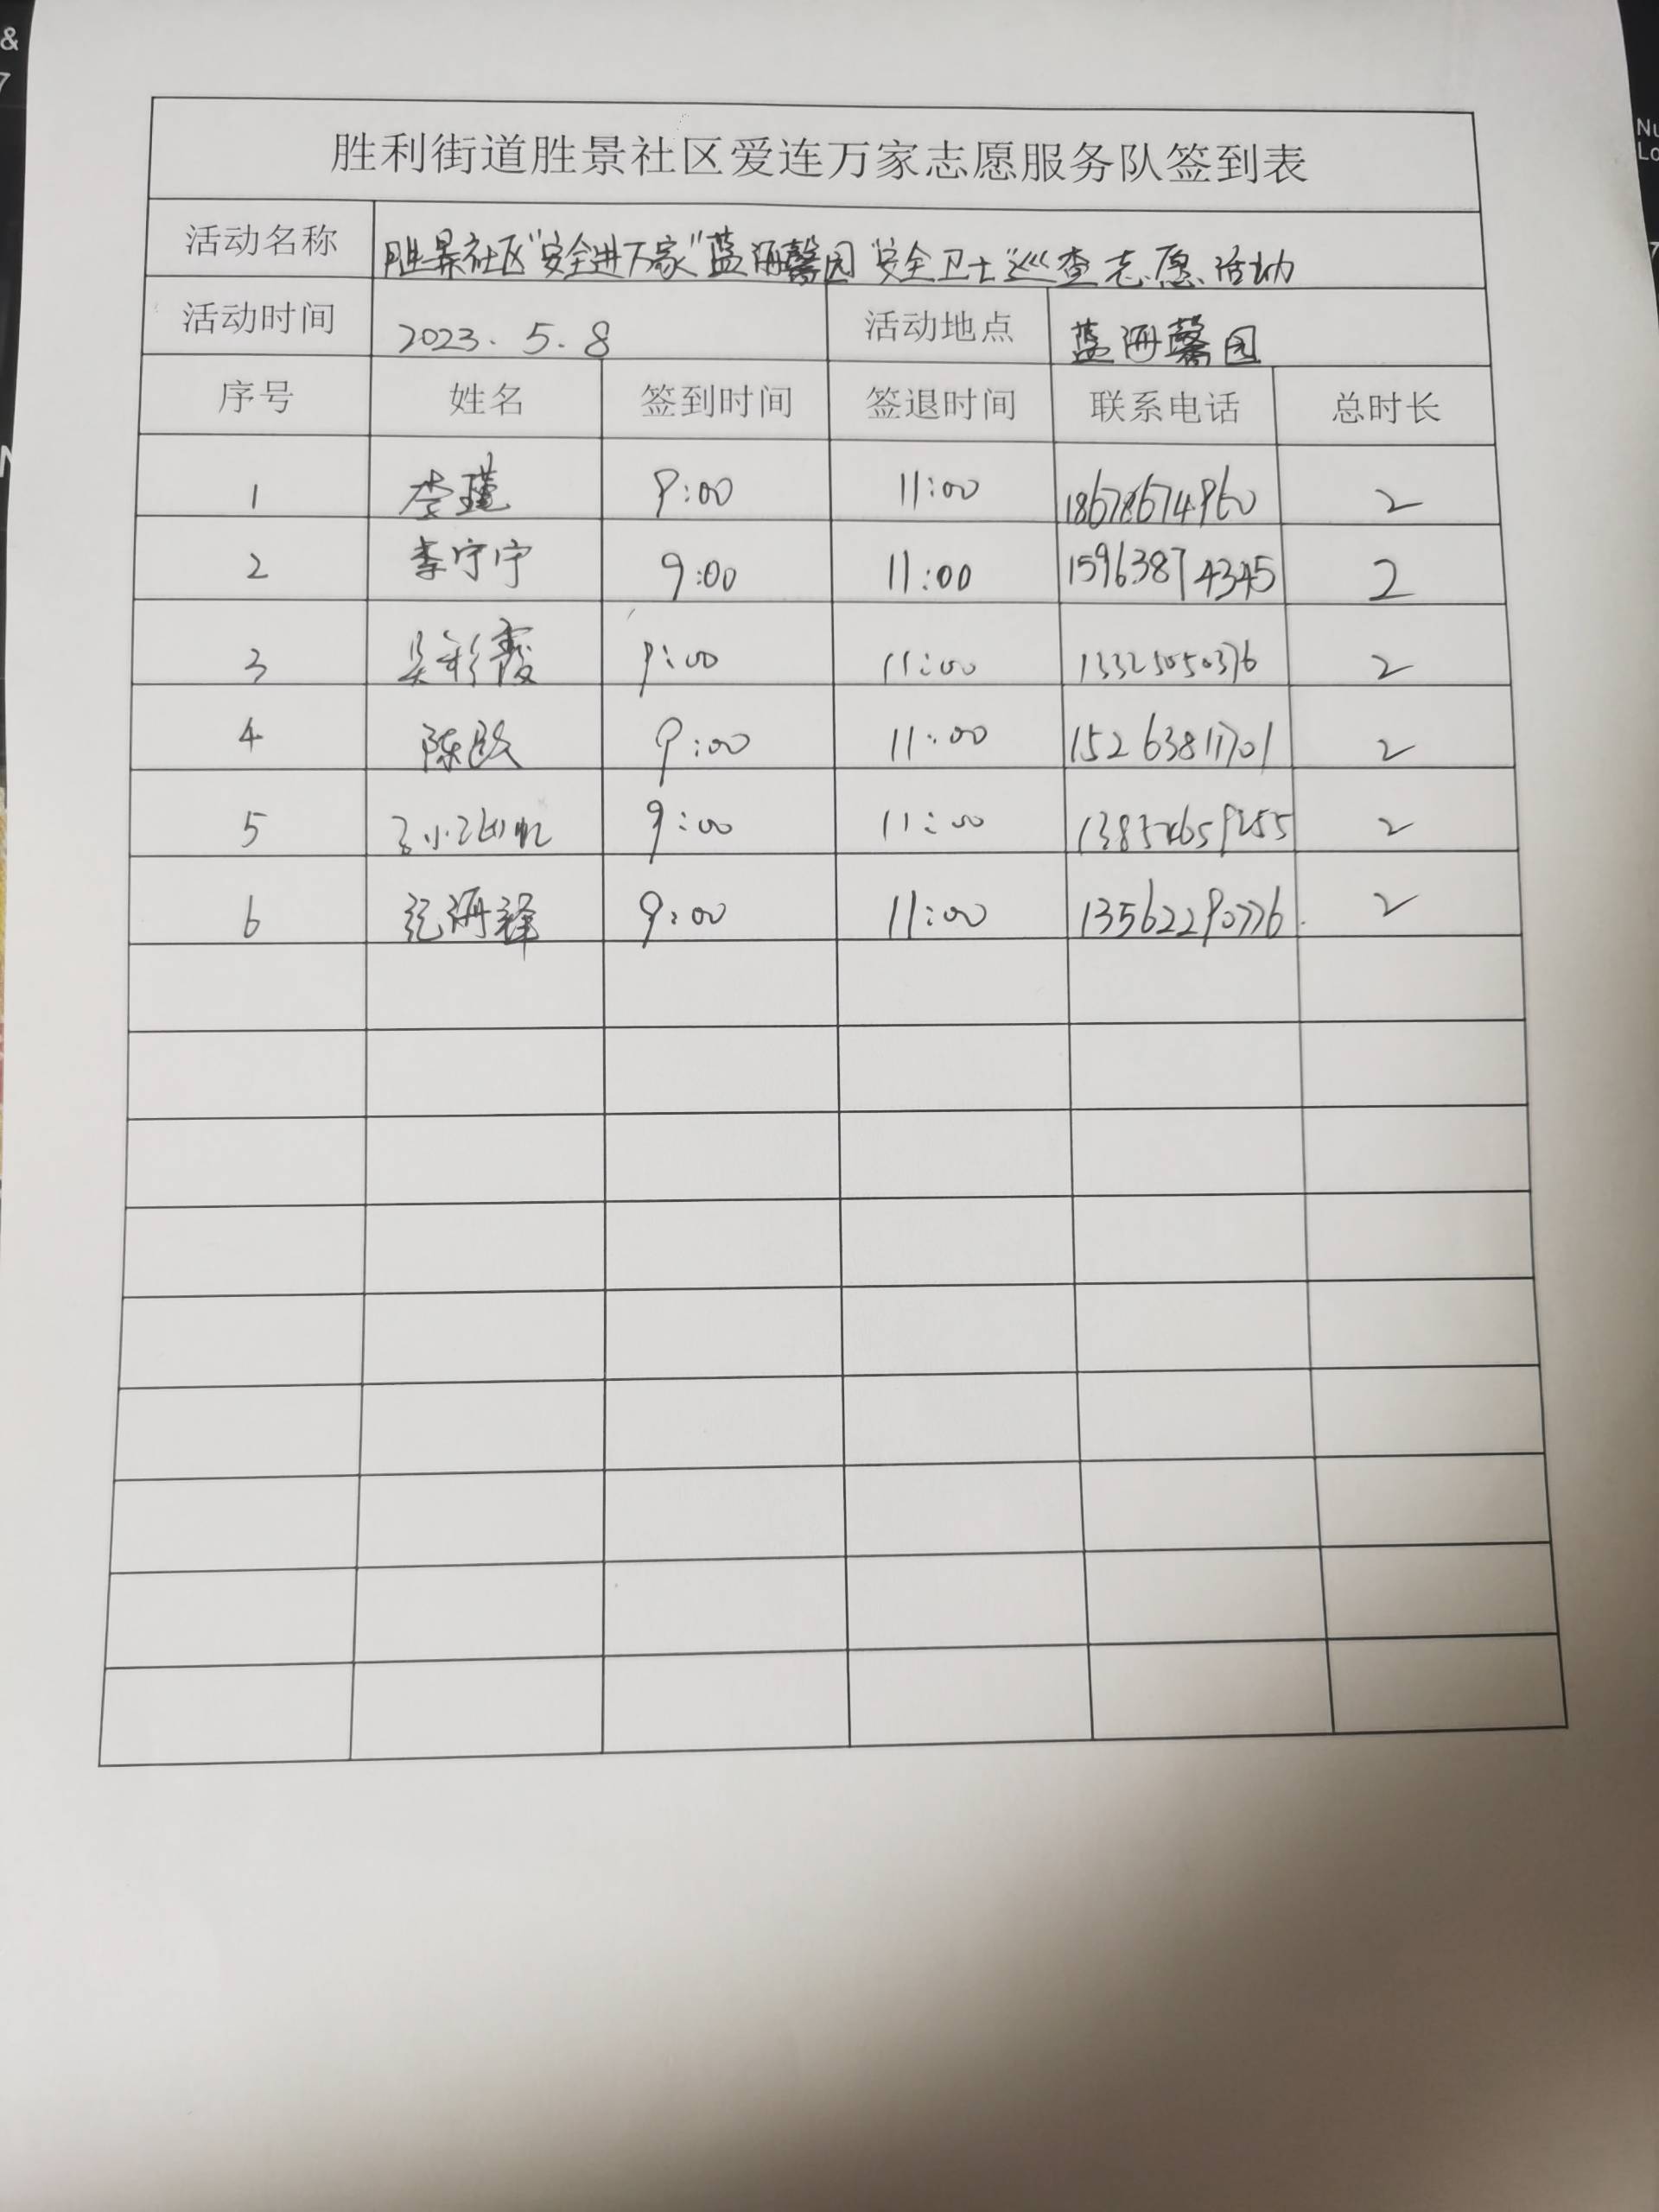 胜利街道胜景社区爱连万家志愿服务队签到表
活动名称 胜景社区"安全进万家"蓝海馨园"安全卫士"巡查志愿活动
活动时间 2023.5.8 活动地点 蓝海馨园
序号 姓名 签到时间 签退时间 联系电话 总时长
1 李瑾 9:00 11:00 18678674960 2
2 李宁宁 9:00 11:00 15963874345 2
3 吴彩霞 9:00 11:00 13325050376 2
4 陈 9:00 11:00 15263811701 2
5 9:00 11:00 2
6 纪海锋 9:00 11:00 13562290776 2